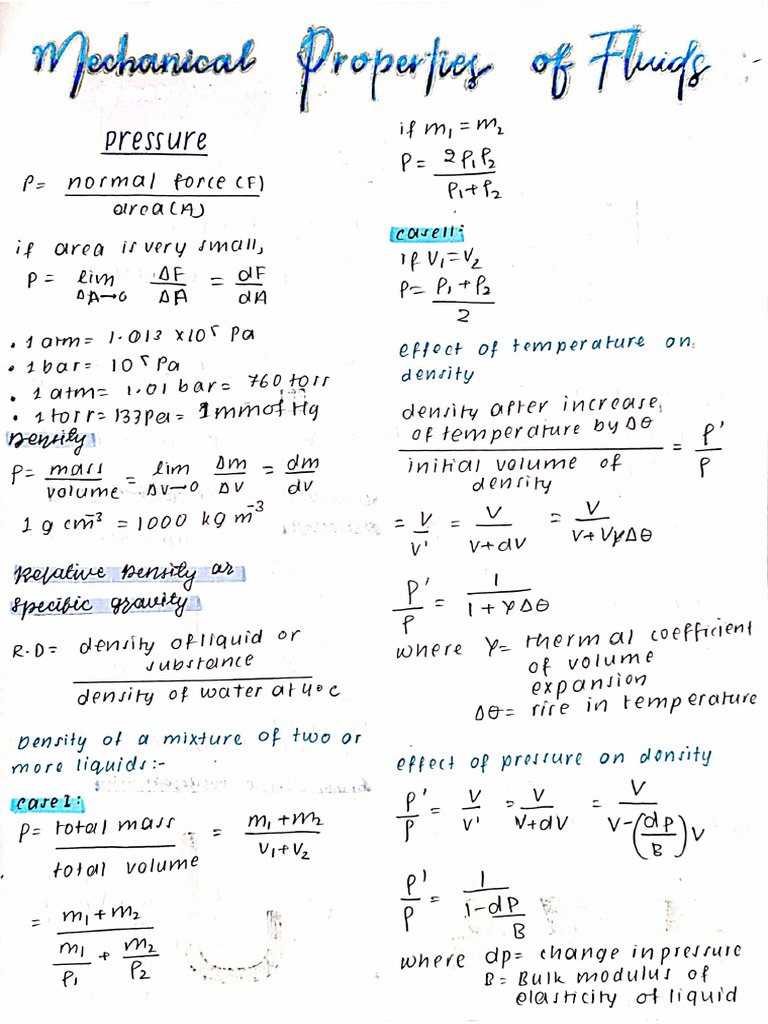 Mechanical Properties of Fluids
pressure
P = normal force (F) / area (A)
if area is very small,
P = lim ΔA→0 ΔF/ΔA = dF/dA
• 1 atm = 1.013 × 10⁵ Pa
• 1 bar = 10⁵ Pa
• 1 atm = 1.01 bar = 760 torr
• 1 torr = 133 pa = 1 mm of Hg
Density
ρ = mass/volume = lim ΔV→0 Δm/ΔV = dm/dv
1 g cm⁻³ = 1000 kg m⁻³
Relative Density or
specific gravity
R.D = density of liquid or substance / density of water at 4°C
Density of a mixture of two or
more liquids:-
case I:
ρ = total mass / total volume = m₁+m₂ / v₁+v₂
= m₁+m₂ / (m₁/ρ₁ + m₂/ρ₂)
if m₁ = m₂
ρ = 2ρ₁ρ₂ / ρ₁+ρ₂
case II:
if V₁ = V₂
ρ = ρ₁+ρ₂ / 2
effect of temperature on
density
density after increase of temperature by Δθ / initial volume of density = ρ'/ρ
= V/V' = V/V+dV = V/V+VγΔθ
ρ'/ρ = 1 / 1+γΔθ
where γ = thermal coefficient
of volume
expansion
Δθ = rise in temperature
effect of pressure on density
ρ'/ρ = V/V' = V/V+dV = V / V-(dp/B)V
ρ'/ρ = 1 / 1-dp/B
where dp = change in pressure
B = Bulk modulus of
elasticity of liquid